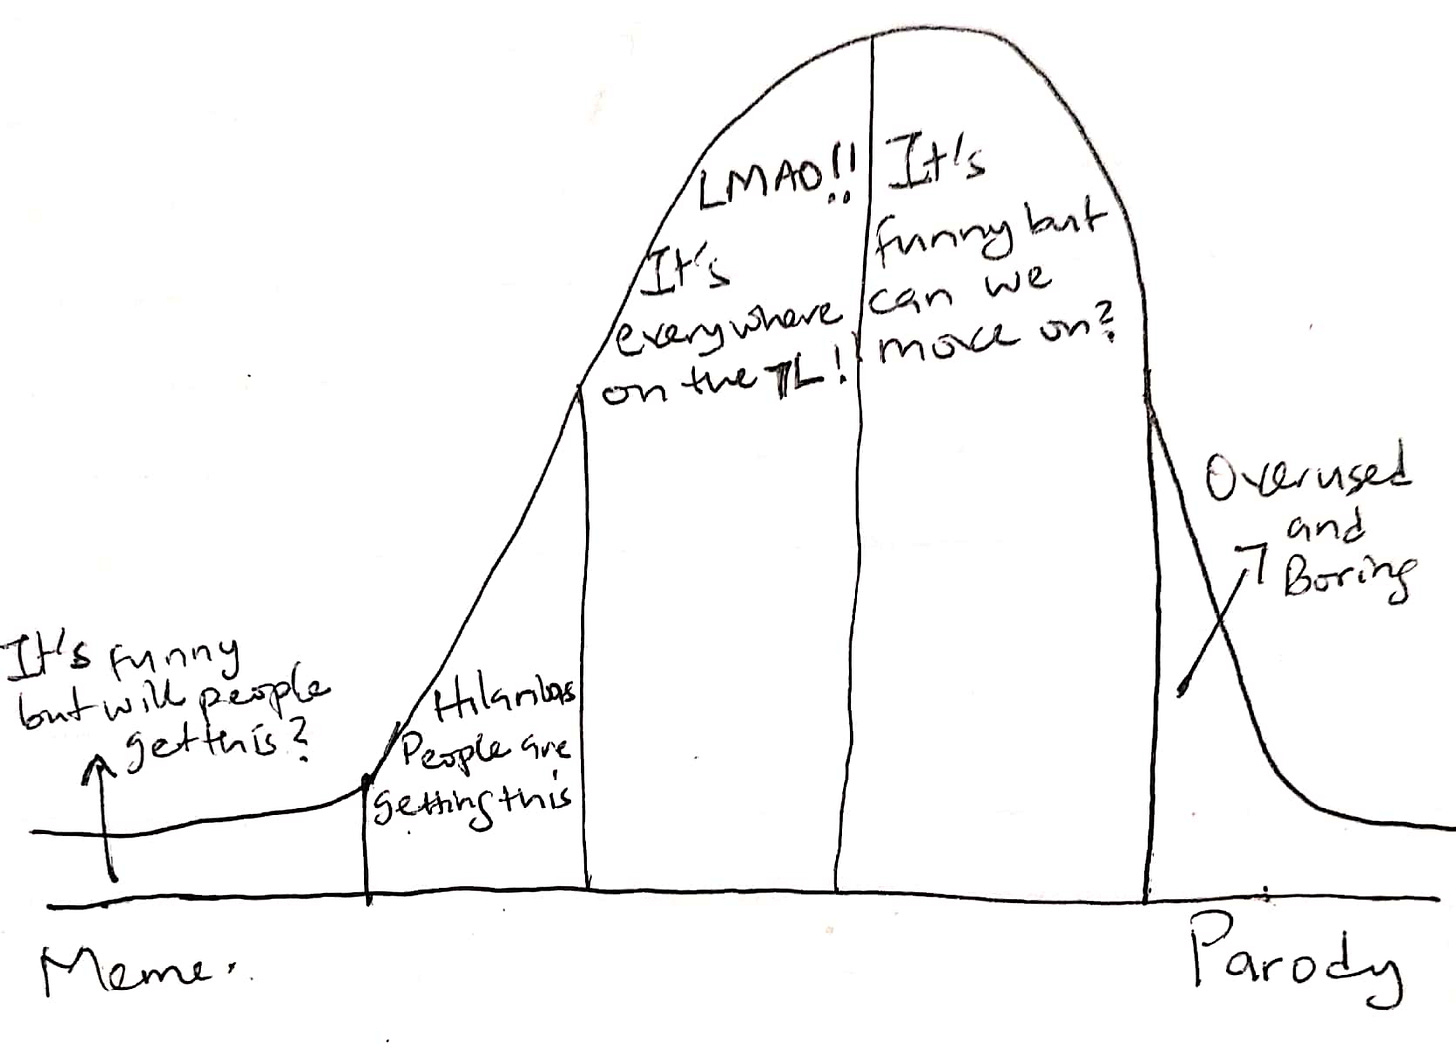 It's funny
but will people
get this?
Hilarious
People are
getting this
LMAO!!
It's
everywhere
on the TL!
It's
funny but
can we
move on?
Overused
and
Boring
Meme.
Parody